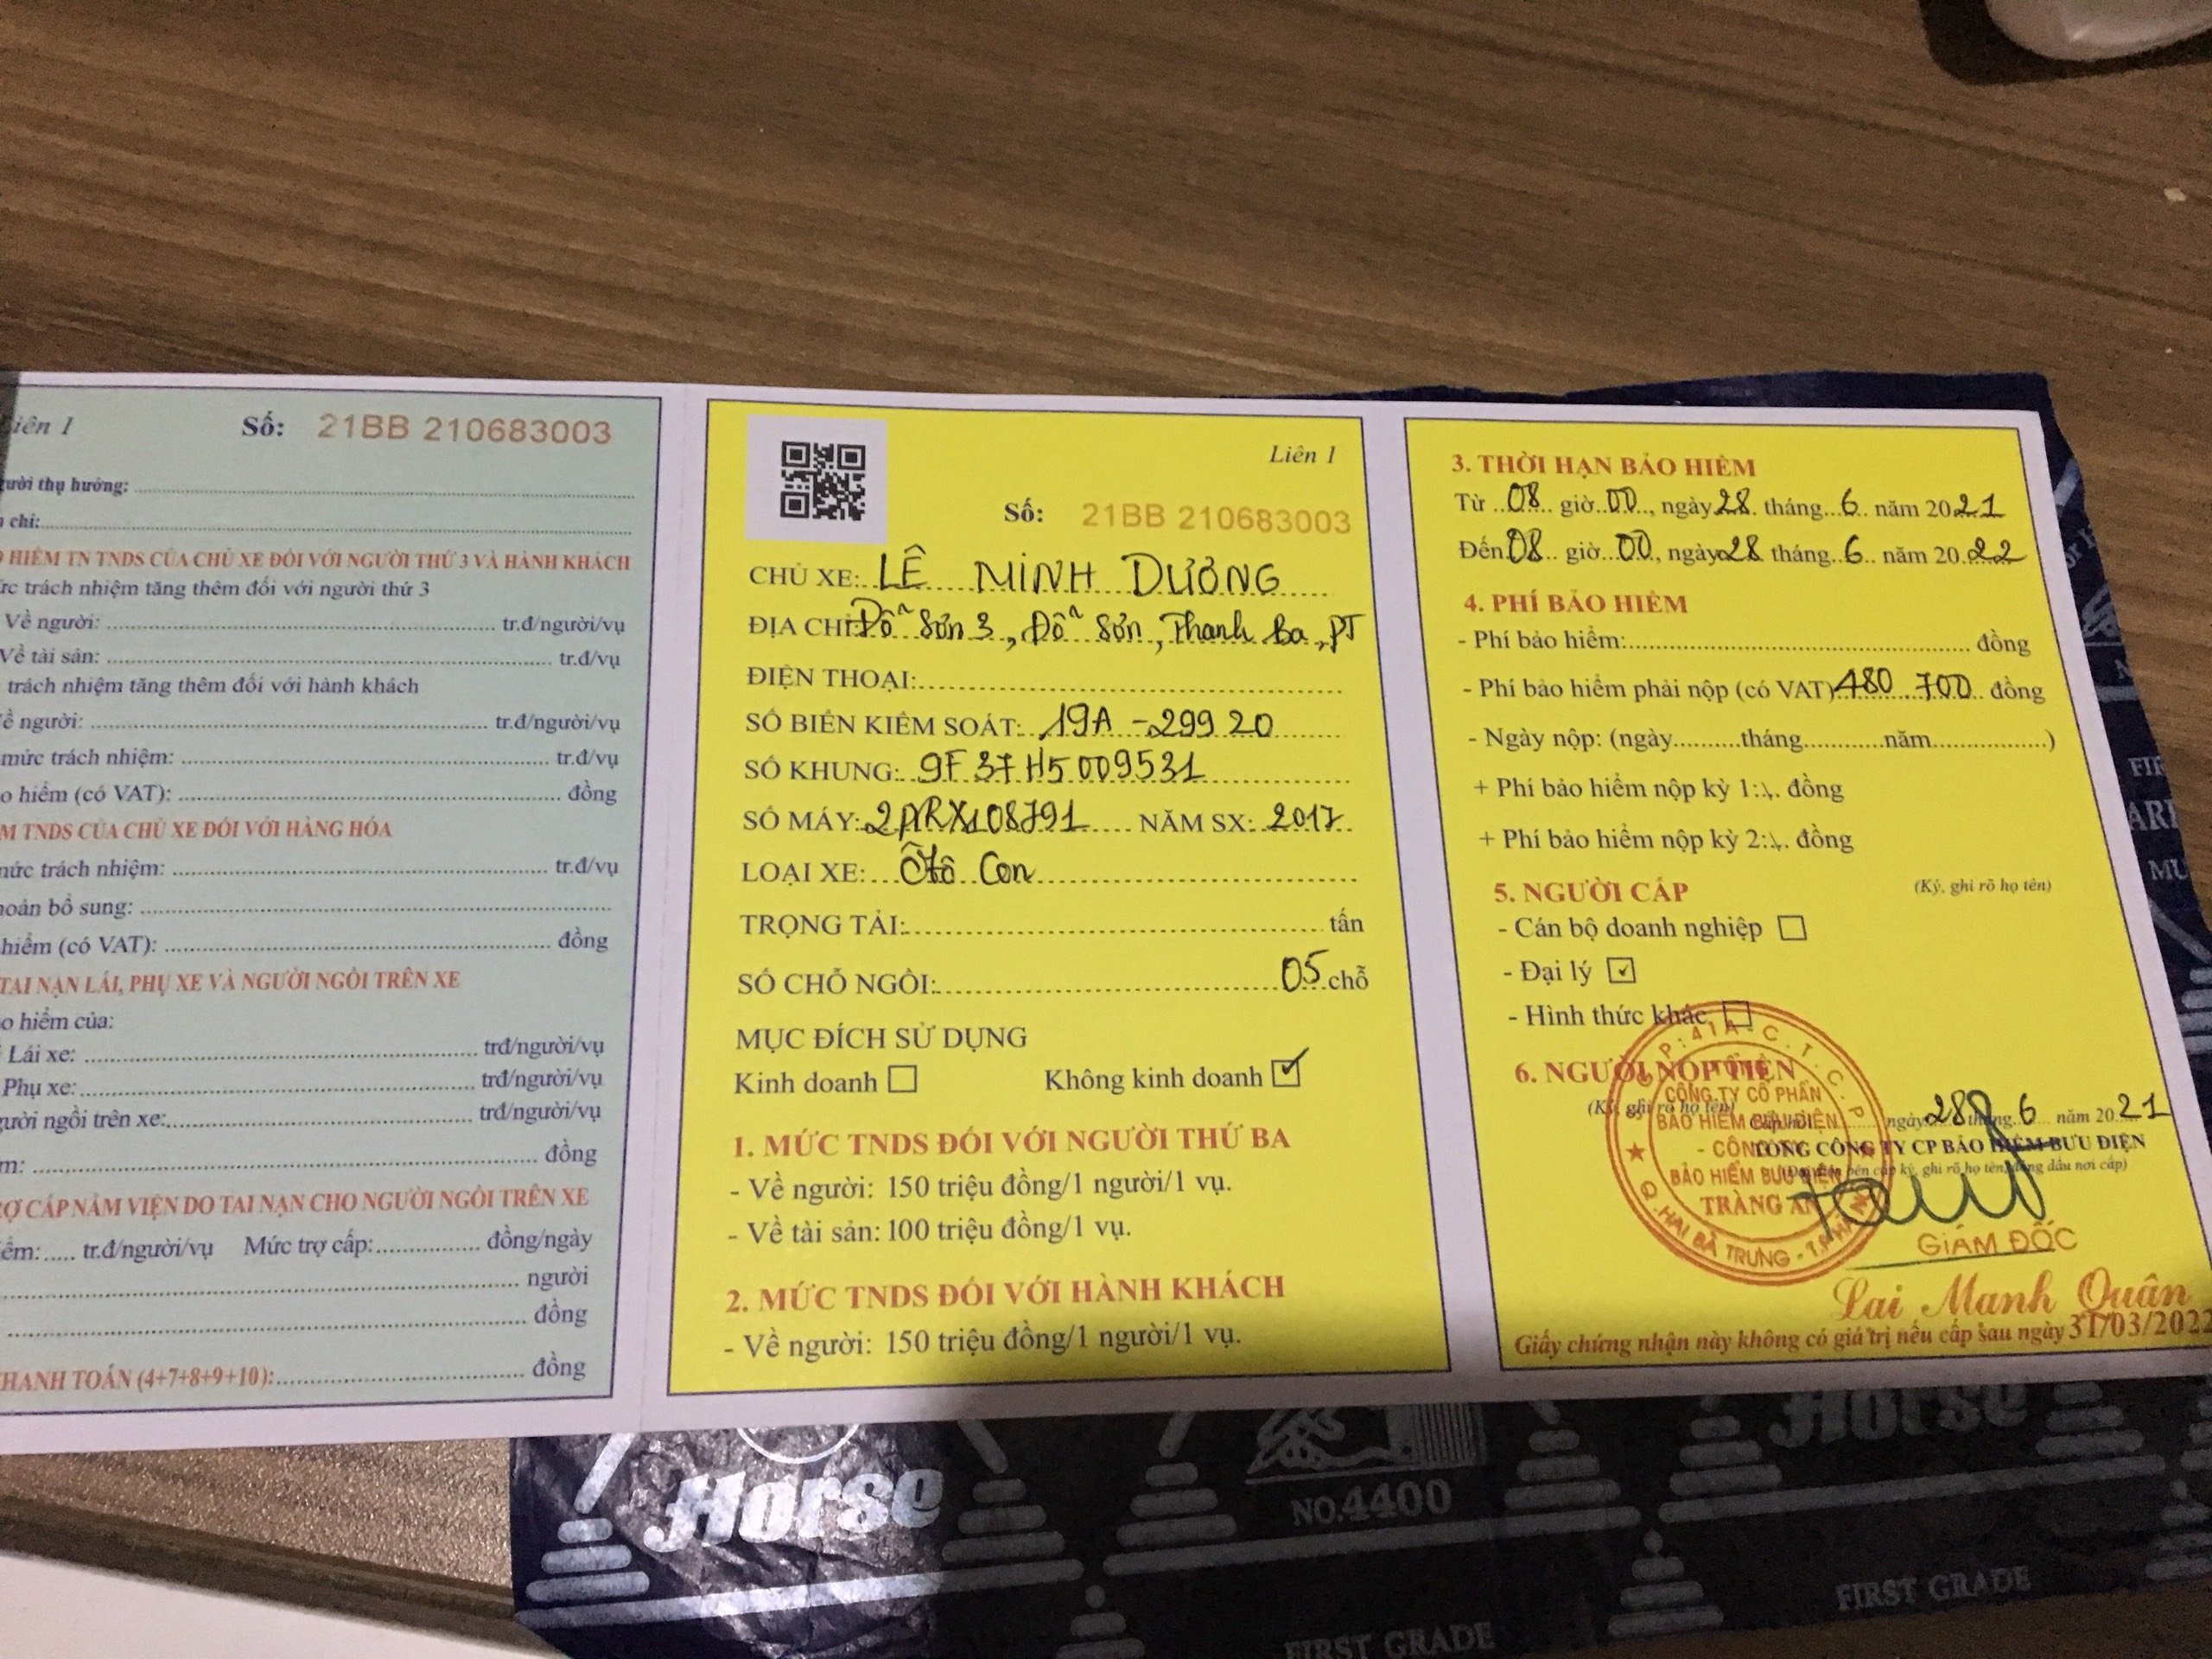 Liên 1
Số: 21BB 210683003
thụ hưởng:
chỉ:
HIỂM TN TNDS CỦA CHỦ XE ĐỐI VỚI NGƯỜI THỨ 3 VÀ HÀNH KHÁCH
trách nhiệm tăng thêm đối với người thứ 3
Về người: tr.đ/người/vụ
Về tài sản: tr.đ/vụ
trách nhiệm tăng thêm đối với hành khách
người: tr.đ/người/vụ
mức trách nhiệm: tr.đ/vụ
hiểm (có VAT): đồng
TNDS CỦA CHỦ XE ĐỐI VỚI HÀNG HÓA
trách nhiệm: tr.đ/vụ
bổ sung:
hiểm (có VAT): đồng
TAI NẠN LÁI, PHỤ XE VÀ NGƯỜI NGỒI TRÊN XE
hiểm của:
Lái xe: trđ/người/vụ
Phụ xe: trđ/người/vụ
ngồi trên xe: trđ/người/vụ
đồng
CẤP NẰM VIỆN DO TAI NẠN CHO NGƯỜI NGỒI TRÊN XE
tr.đ/người/vụ Mức trợ cấp: đồng/ngày
người
đồng
THANH TOÁN (4+7+8+9+10): đồng
Liên 1
Số: 21BB 210683003
CHỦ XE: LÊ MINH DƯƠNG
ĐỊA CHỈ: Đỗ Sơn 3, Đỗ Sơn, Thanh Ba, PT
ĐIỆN THOẠI:
SỐ BIỂN KIỂM SOÁT: 19A - 299 20
SỐ KHUNG: 9F37H5009531
SỐ MÁY: 2NRX108791 NĂM SX: 2017
LOẠI XE: Ôtô Con
TRỌNG TẢI: tấn
SỐ CHỖ NGỒI: 05 chỗ
MỤC ĐÍCH SỬ DỤNG
Kinh doanh ☐ Không kinh doanh ☑
1. MỨC TNDS ĐỐI VỚI NGƯỜI THỨ BA
- Về người: 150 triệu đồng/1 người/1 vụ.
- Về tài sản: 100 triệu đồng/1 vụ.
2. MỨC TNDS ĐỐI VỚI HÀNH KHÁCH
- Về người: 150 triệu đồng/1 người/1 vụ.
3. THỜI HẠN BẢO HIỂM
Từ 08 giờ 00, ngày 28 tháng 6 năm 2021
Đến 08 giờ 00, ngày 28 tháng 6 năm 2022
4. PHÍ BẢO HIỂM
- Phí bảo hiểm: đồng
- Phí bảo hiểm phải nộp (có VAT) 480 700 đồng
- Ngày nộp: (ngày tháng năm )
+ Phí bảo hiểm nộp kỳ 1: đồng
+ Phí bảo hiểm nộp kỳ 2: đồng
5. NGƯỜI CẤP (Ký, ghi rõ họ tên)
- Cán bộ doanh nghiệp ☐
- Đại lý ☑
- Hình thức khác ☐
6. NGƯỜI NỘP TIỀN
(Ký, ghi rõ họ tên)
ngày 28 tháng 6 năm 2021
TỔNG CÔNG TY CP BẢO HIỂM BƯU ĐIỆN
bên cấp ký, ghi rõ họ tên, đóng dấu nơi cấp)
TỔNG
CÔNG TY CỔ PHẦN
BẢO HIỂM BƯU ĐIỆN
- CÔNG TY
BẢO HIỂM BƯU ĐIỆN
TRÀNG AN
Q. HAI BÀ TRƯNG - T.P HÀ NỘI
GIÁM ĐỐC
Lại Mạnh Quân
Giấy chứng nhận này không có giá trị nếu cấp sau ngày 31/03/2022
Horse
NO.4400
Horse
FIRST GRADE
FIRST GRADE